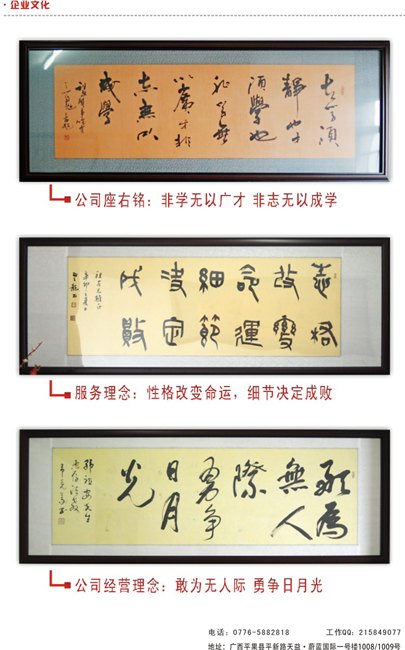 企业文化
夫學須
靜也才
須學也
非學無
以廣才非
志無以
成學
公司座右铭：非学无以广才 非志无以成学
性格
改變
命運
細節
決定
成敗
服务理念：性格改变命运，细节决定成败
敢為
無人
際
勇爭
日月
光
公司经营理念：敢为无人际 勇争日月光
电话：0776-5882818 工作QQ：215849077
地址：广西平果县平新路天益·蔚蓝国际一号楼1008/1009号